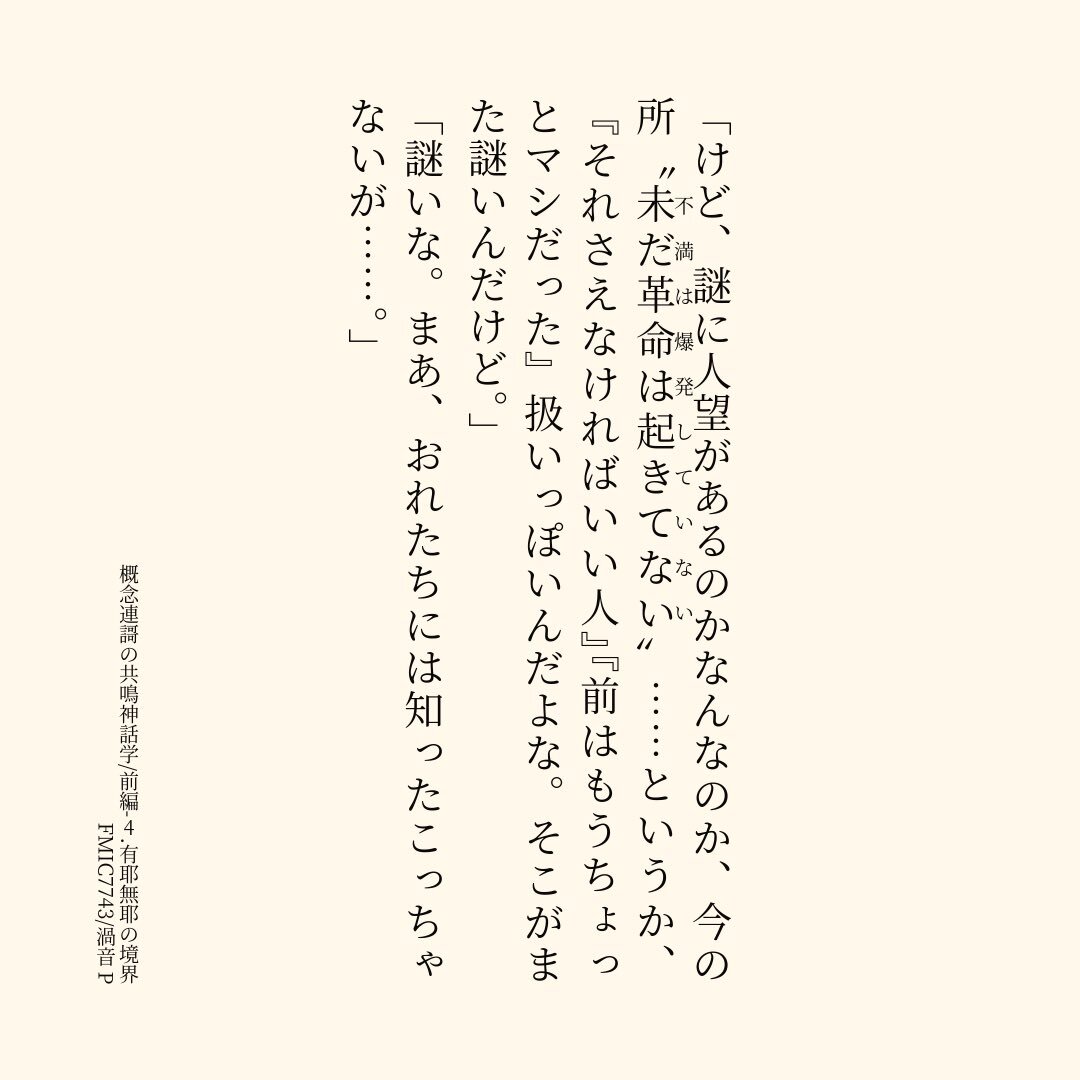 「けど、謎に人望があるのかなんなのか、今の
所〝未だ革命は起きてない〟……というか、
不満は爆発していない
『それさえなければいい人』『前はもうちょっ
とマシだった』扱いっぽいんだよな。そこがま
た謎いんだけど。」
「謎いな。まあ、おれたちには知ったこっちゃ
ないが……。」
概念連謌の共鳴神話学/前編-4.有耶無耶の境界
FMIC7743/渦音P